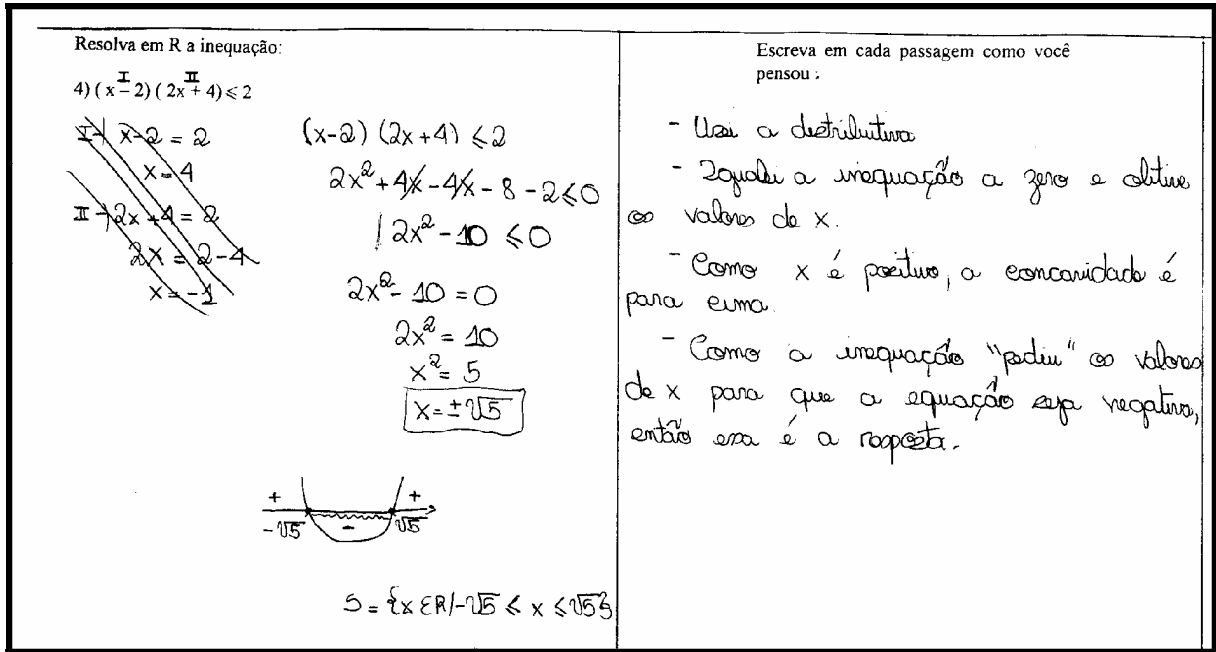 Resolva em R a inequação:
4) ( x - 2) ( 2x + 4) ≤ 2
I II
I-| x-2 = 2
x = 4
II-| 2x + 4 = 2
2x = 2-4
x = -1
(x-2) (2x+4) ≤ 2
2x² + 4x - 4x - 8 - 2 ≤ 0
| 2x² - 10 ≤ 0
2x² - 10 = 0
2x² = 10
x² = 5
x = ±√5
+ +
-√5 - √5
S = {x ∈ R/-√5 ≤ x ≤ √5}
Escreva em cada passagem como você
pensou :
- Usei a distributiva
- Igualei a inequação a zero e obtive
os valores de x.
- Como x é positivo, a concavidade é
para cima.
- Como a inequação "pediu" os valores
de x para que a equação seja negativa,
então essa é a resposta.